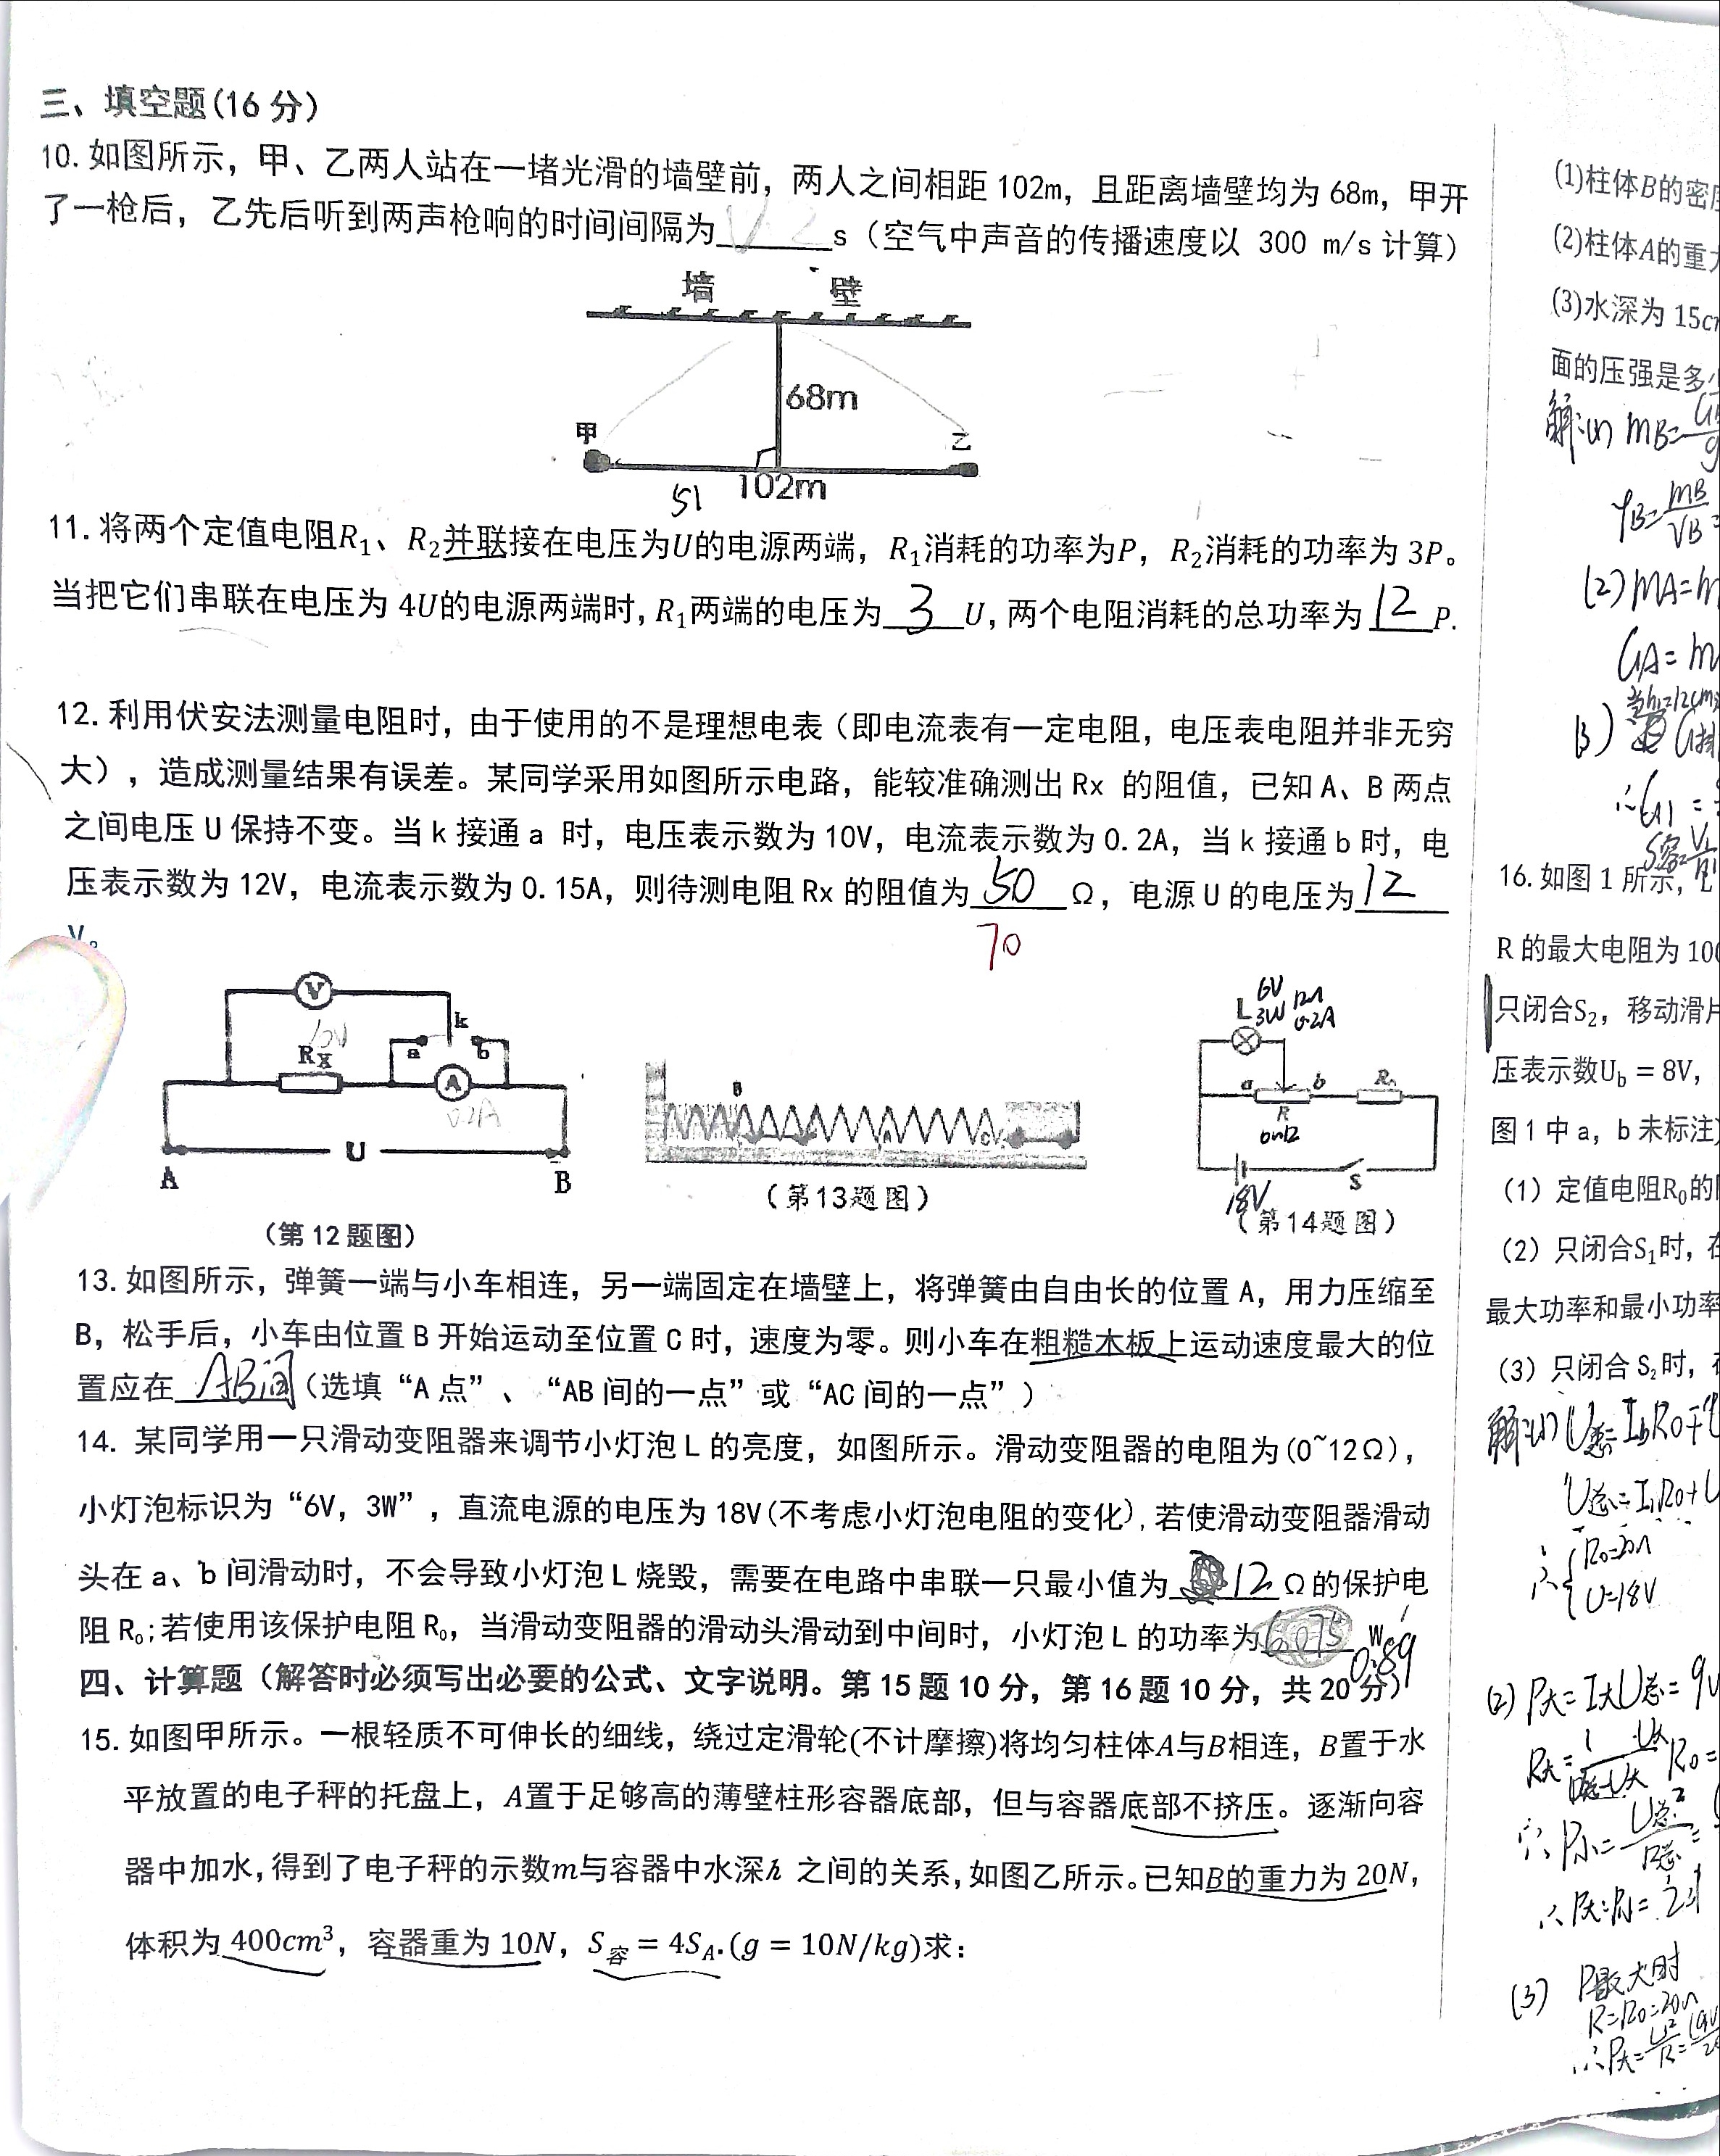 三、填空题(16分)
10.如图所示，甲、乙两人站在一堵光滑的墙壁前，两人之间相距102m，且距离墙壁均为68m，甲开
了一枪后，乙先后听到两声枪响的时间间隔为______s（空气中声音的传播速度以 300 m/s计算）
墙 壁
68m
甲 乙
102m
51
11.将两个定值电阻R₁、R₂并联接在电压为U的电源两端，R₁消耗的功率为P，R₂消耗的功率为3P。
当把它们串联在电压为 4U的电源两端时，R₁两端的电压为 3 U，两个电阻消耗的总功率为 12 P.
12.利用伏安法测量电阻时，由于使用的不是理想电表（即电流表有一定电阻，电压表电阻并非无穷
大），造成测量结果有误差。某同学采用如图所示电路，能较准确测出Rx 的阻值，已知A、B两点
之间电压U保持不变。当k接通a 时，电压表示数为10V，电流表示数为0.2A，当k接通b时，电
压表示数为12V，电流表示数为0.15A，则待测电阻Rx的阻值为 50 Ω，电源U的电压为 12
V。
70
V
10V
k
a b
Rx
A
0.2A
U
A B
（第12题图）
B
（第13题图）
6V
L 3W
a b R₀
R
0~12
18V S
（第14题图）
13.如图所示，弹簧一端与小车相连，另一端固定在墙壁上，将弹簧由自由长的位置A，用力压缩至
B，松手后，小车由位置B开始运动至位置C时，速度为零。则小车在粗糙木板上运动速度最大的位
置应在 AB间（选填“A点”、“AB间的一点”或“AC间的一点”）
14. 某同学用一只滑动变阻器来调节小灯泡L的亮度，如图所示。滑动变阻器的电阻为(0~12Ω)，
小灯泡标识为“6V，3W”，直流电源的电压为18V(不考虑小灯泡电阻的变化),若使滑动变阻器滑动
头在a、b间滑动时，不会导致小灯泡L烧毁，需要在电路中串联一只最小值为 12 Ω的保护电
阻R₀;若使用该保护电阻R₀，当滑动变阻器的滑动头滑动到中间时，小灯泡L的功率为 W。
0.89
四、计算题（解答时必须写出必要的公式、文字说明。第15题10分，第16题10分，共20分）
15.如图甲所示。一根轻质不可伸长的细线，绕过定滑轮(不计摩擦)将均匀柱体A与B相连，B置于水
平放置的电子秤的托盘上，A置于足够高的薄壁柱形容器底部，但与容器底部不挤压。逐渐向容
器中加水,得到了电子秤的示数m与容器中水深h 之间的关系,如图乙所示。已知B的重力为20N，
体积为400cm³，容器重为10N，S容 = 4S_A.(g = 10N/kg)求：
(1)柱体B的密
(2)柱体A的重
(3)水深为15c
面的压强是多
解:(1) mB=
ρB=mB/VB=
(2) mA=m
GA=m
(3)
16.如图1所示，
R的最大电阻为10
只闭合S₂，移动滑
压表示数U_b = 8V，
图1中a，b未标注
（1）定值电阻R₀的
（2）只闭合S₁时，在
最大功率和最小功率
（3）只闭合S₂时，在
解:(1) U总=I_bR₀+U
U总=I₁R₀+U
∴{R₀=20Ω
U=18V
(2) P大=I大U总=9
∴P小=U总²/R总=
∴P大:P小=2:1
(3) P最大时
R=R₀=20Ω
∴P大=U²/R=